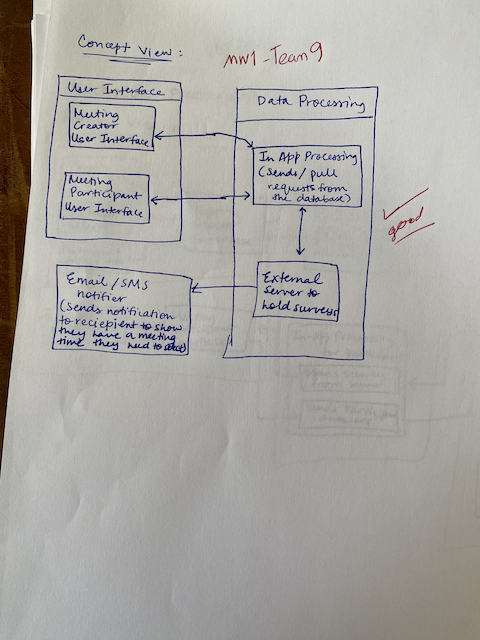 Concept View:
MW1-Team 9
User Interface
Meeting
Creator
User Interface
Meeting
Participant
User Interface
Data Processing
In App Processing
(Sends/pull
requests from
the database)
External
Server to
hold surveys
Email/SMS
notifier
(Sends notification
to reciepient to show
they have a meeting
time they need to select)
good